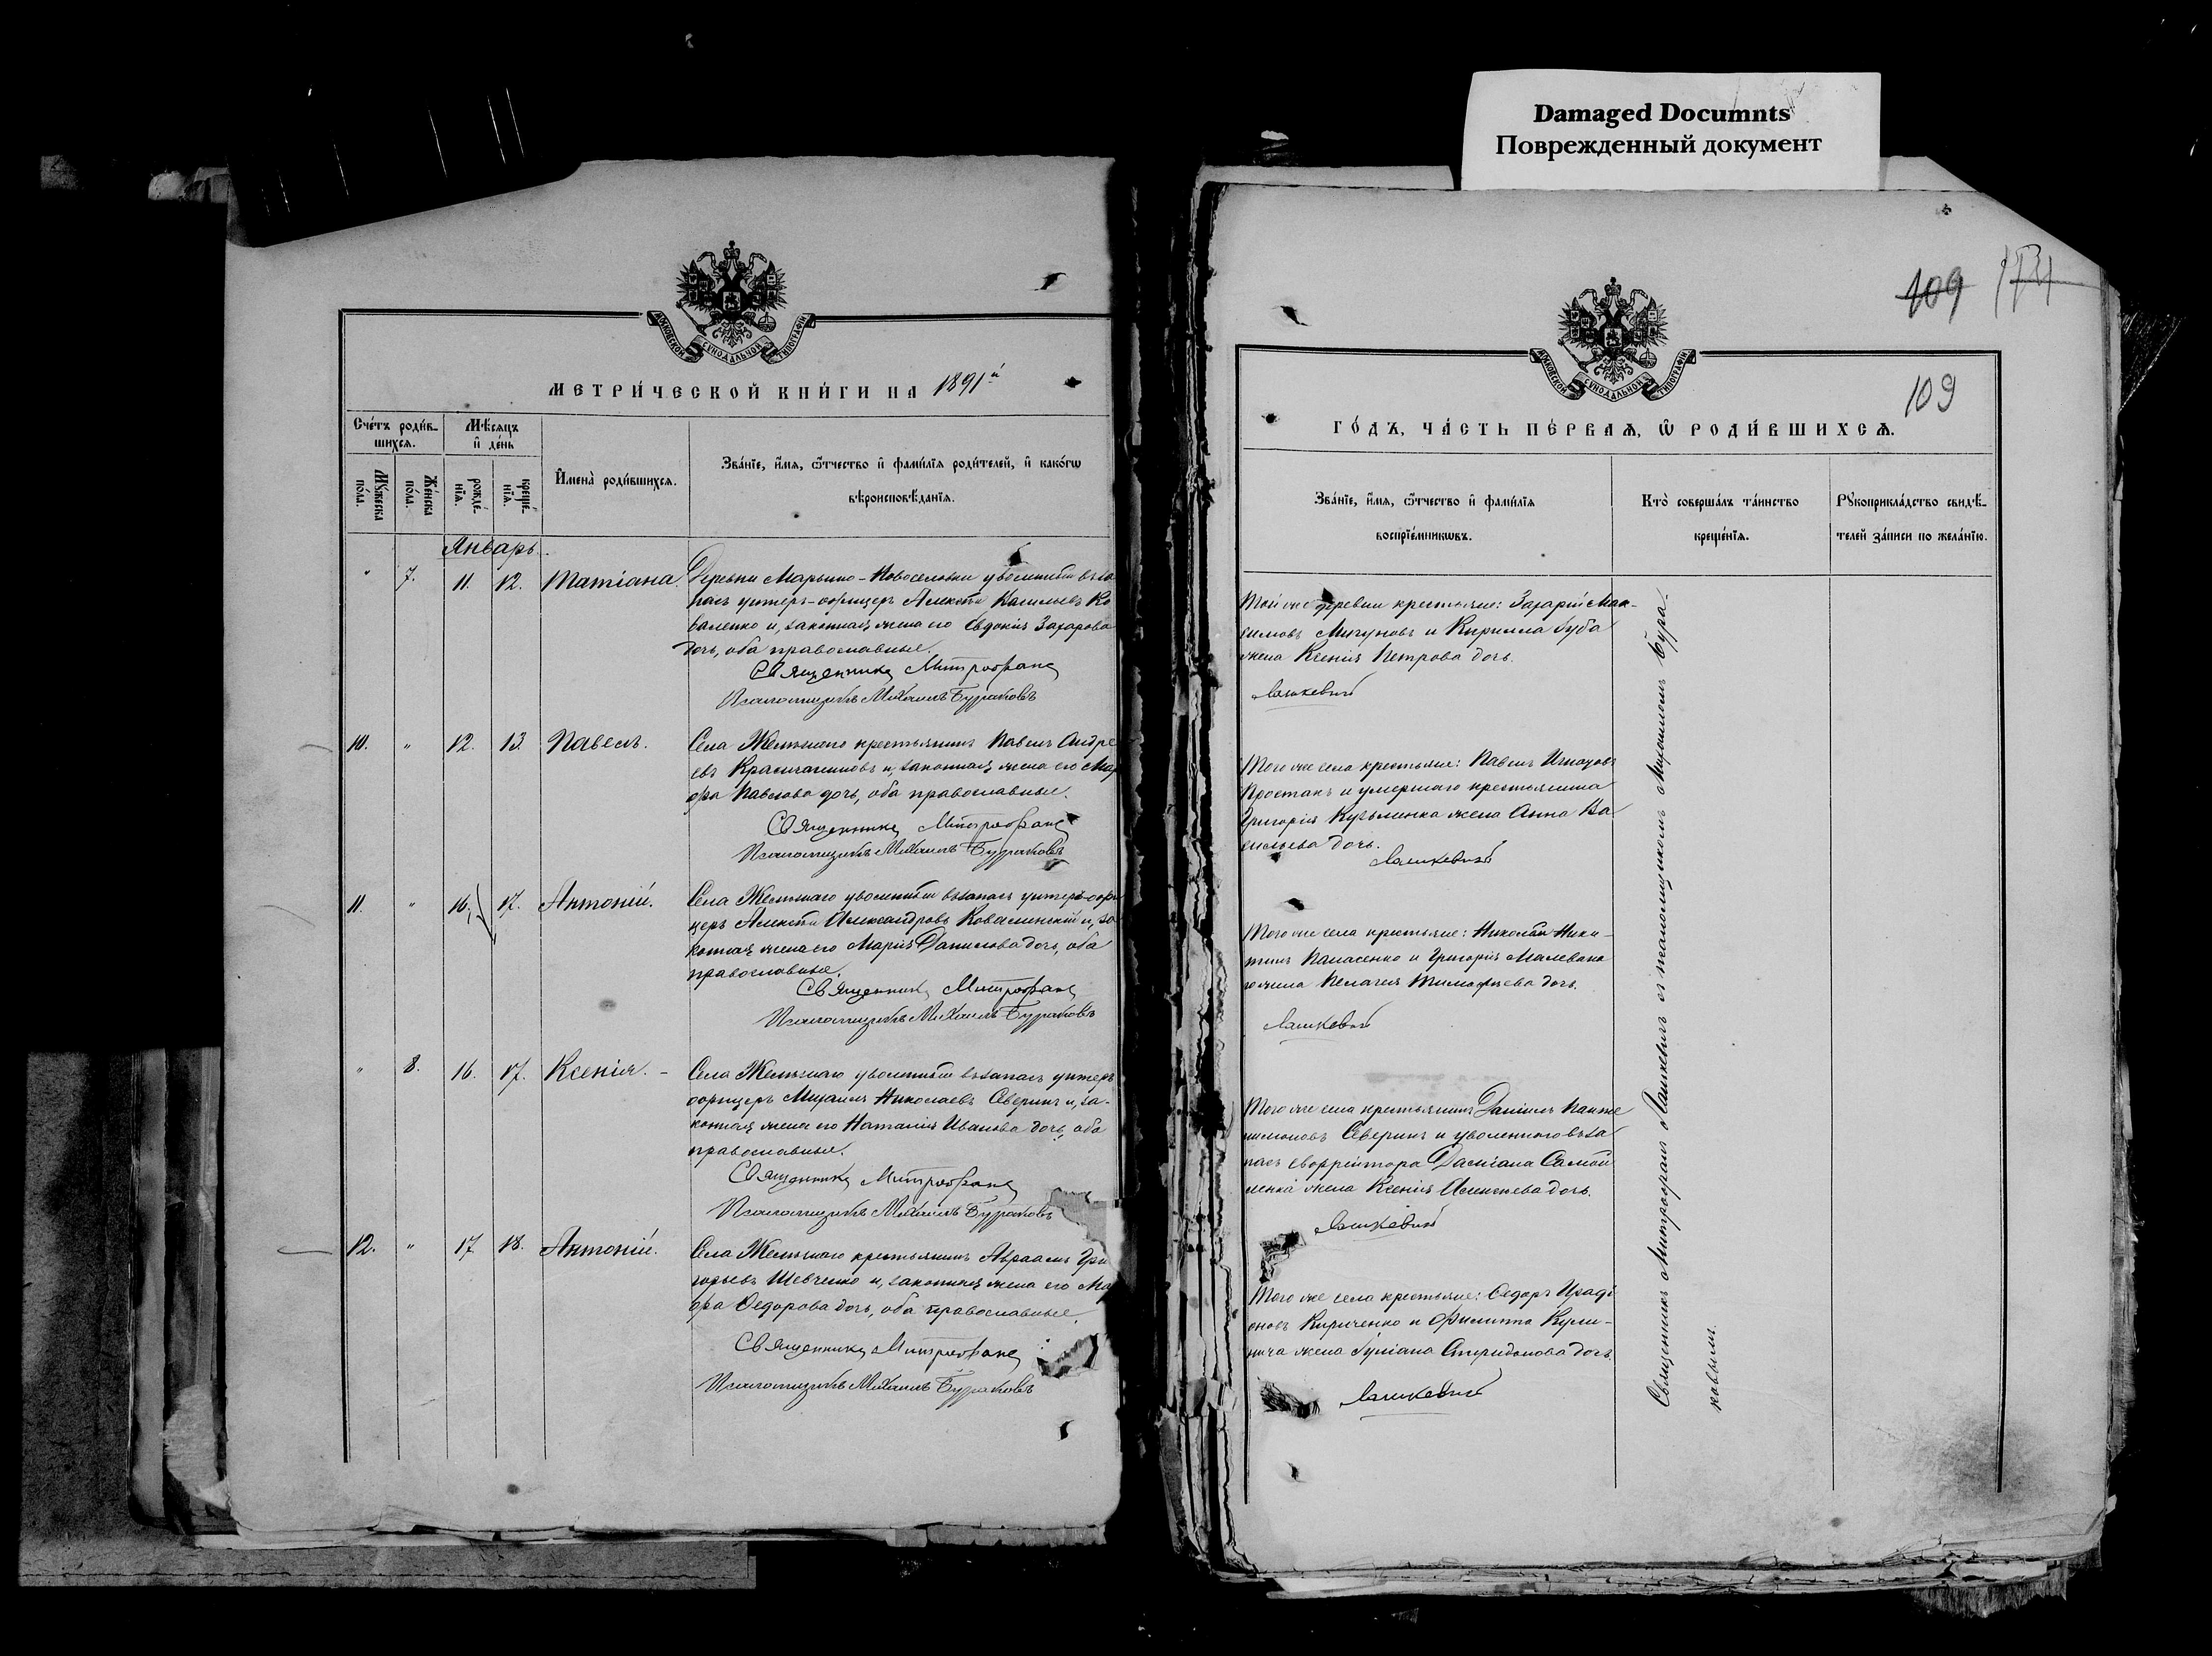 Damaged Documnts
Поврежденный документ
МОСКОВСКОЙ СѴНОДАЛЬНОЙ ТИПОГРАФІИ
МЕТРИ́ЧЕСКОЙ КНИ́ГИ НА 1891й
Сче́тъ роди́в-
шихся.
Мѣсяцъ
и҆ де́нь
Мꙋ́жеска
по́ла.
Же́нска
по́ла.
рожде́-
нїѧ.
креще́-
нїѧ.
И҆мена̀ роди́вшихсѧ.
Зва́нїе, и҆́мѧ, ѻ҆́тчество и҆ фами́лїѧ роди́телей, и҆ како́гѡ
вѣроисповѣ́данїѧ.
Январь.
" 7. 11. 12. Татіана.
Деревни Марьино-Новоселовки уволенный въ за-
пасъ унтеръ-офицеръ Алексѣй Васильевъ Ко
валенко и, законная жена его Евдокія Захарова
дочь, оба православные.
Священникъ Митрофанъ
Псаломщикъ Михаилъ Бураковъ
10. " 12. 13. Павелъ.
Села Желѣзнаго крестьянинъ Павелъ Андре
евъ и, законная жена его Мар
фа Павлова дочь, оба православные.
Священникъ Митрофанъ
Псаломщикъ Михаилъ Бураковъ
11. " 16. 17. Антоній.
Села Желѣзнаго уволенный въ запасъ унтеръ-офи
церъ Алексѣй Александровъ Ковалинскій и, за
конная жена его Марія Данилова дочь, оба
православные.
Священникъ Митрофанъ
Псаломщикъ Михаилъ Бураковъ
" 8. 16. 17. Ксенія. -
Села Желѣзнаго уволенный въ запасъ унтеръ
офицеръ Михаилъ Николаевъ Северинъ и, за-
конная жена его Наталія Иванова дочь, оба
православные.
Священникъ Митрофанъ
Псаломщикъ Михаилъ Бураковъ
12. " 17 18. Антоній.
Села Желѣзнаго крестьянинъ Авраамъ Гри
горьевъ Шевченко и, законная жена его Ма
фа Ѳедорова дочь, оба православные.
Священникъ Митрофанъ
Псаломщикъ Михаилъ Бураковъ
109
109
МОСКОВСКОЙ СѴНОДАЛЬНОЙ ТИПОГРАФІИ
ГО́ДЪ, ЧА́СТЬ ПЕ́РВАѦ, Ѡ҆ РОДИ́ВШИХСѦ.
Зва́нїе, и҆́мѧ, ѻ҆́тчество и҆ фами́лїѧ
воспрїе́мникѡвъ.
Кто̀ соверша́лъ та́инство
креще́нїѧ.
Рꙋкоприкла́дство свидѣ́-
телей за́писи по жела́нїю.
Той же деревни крестьяне: Захарій Мак-
симовъ Мигуновъ и Кирилла Губа
жена Ксенія Петрова дочь.
Лашкевичъ
Того же села крестьяне: Павелъ Игнатовъ
Простакъ и умершаго крестьянина
Григорія Кузьменка жена Анна Ва
сильева дочь.
Лашкевичъ
Того же села крестьяне: Николай Ники-
тинъ Панасенко и Григорія Малевана
го жена Пелагея Тимофѣева дочь.
Лашкевичъ
Того же села крестьянинъ Даніилъ Панте
лимоновъ Северинъ и уволеннаго въ за
пасъ ефрейтора Даміана Самой
ленка жена Ксенія Алексѣева дочь.
Лашкевичъ
Того же села крестьяне: Ѳедоръ Ираді
оновъ Кириченко и Филиппа Кули-
нича жена Іуліана Спиридонова дочь.
Лашкевичъ
Священникъ Митрофанъ Лашкевичъ съ псаломщикомъ Михаиломъ Бура-
ковымъ.